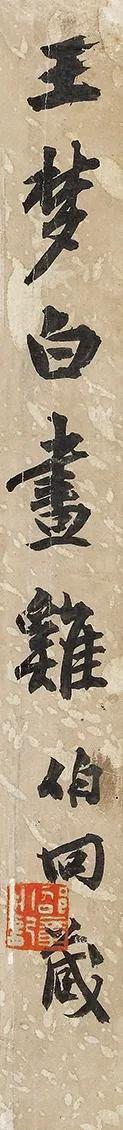 王梦白畫雞伯回藏